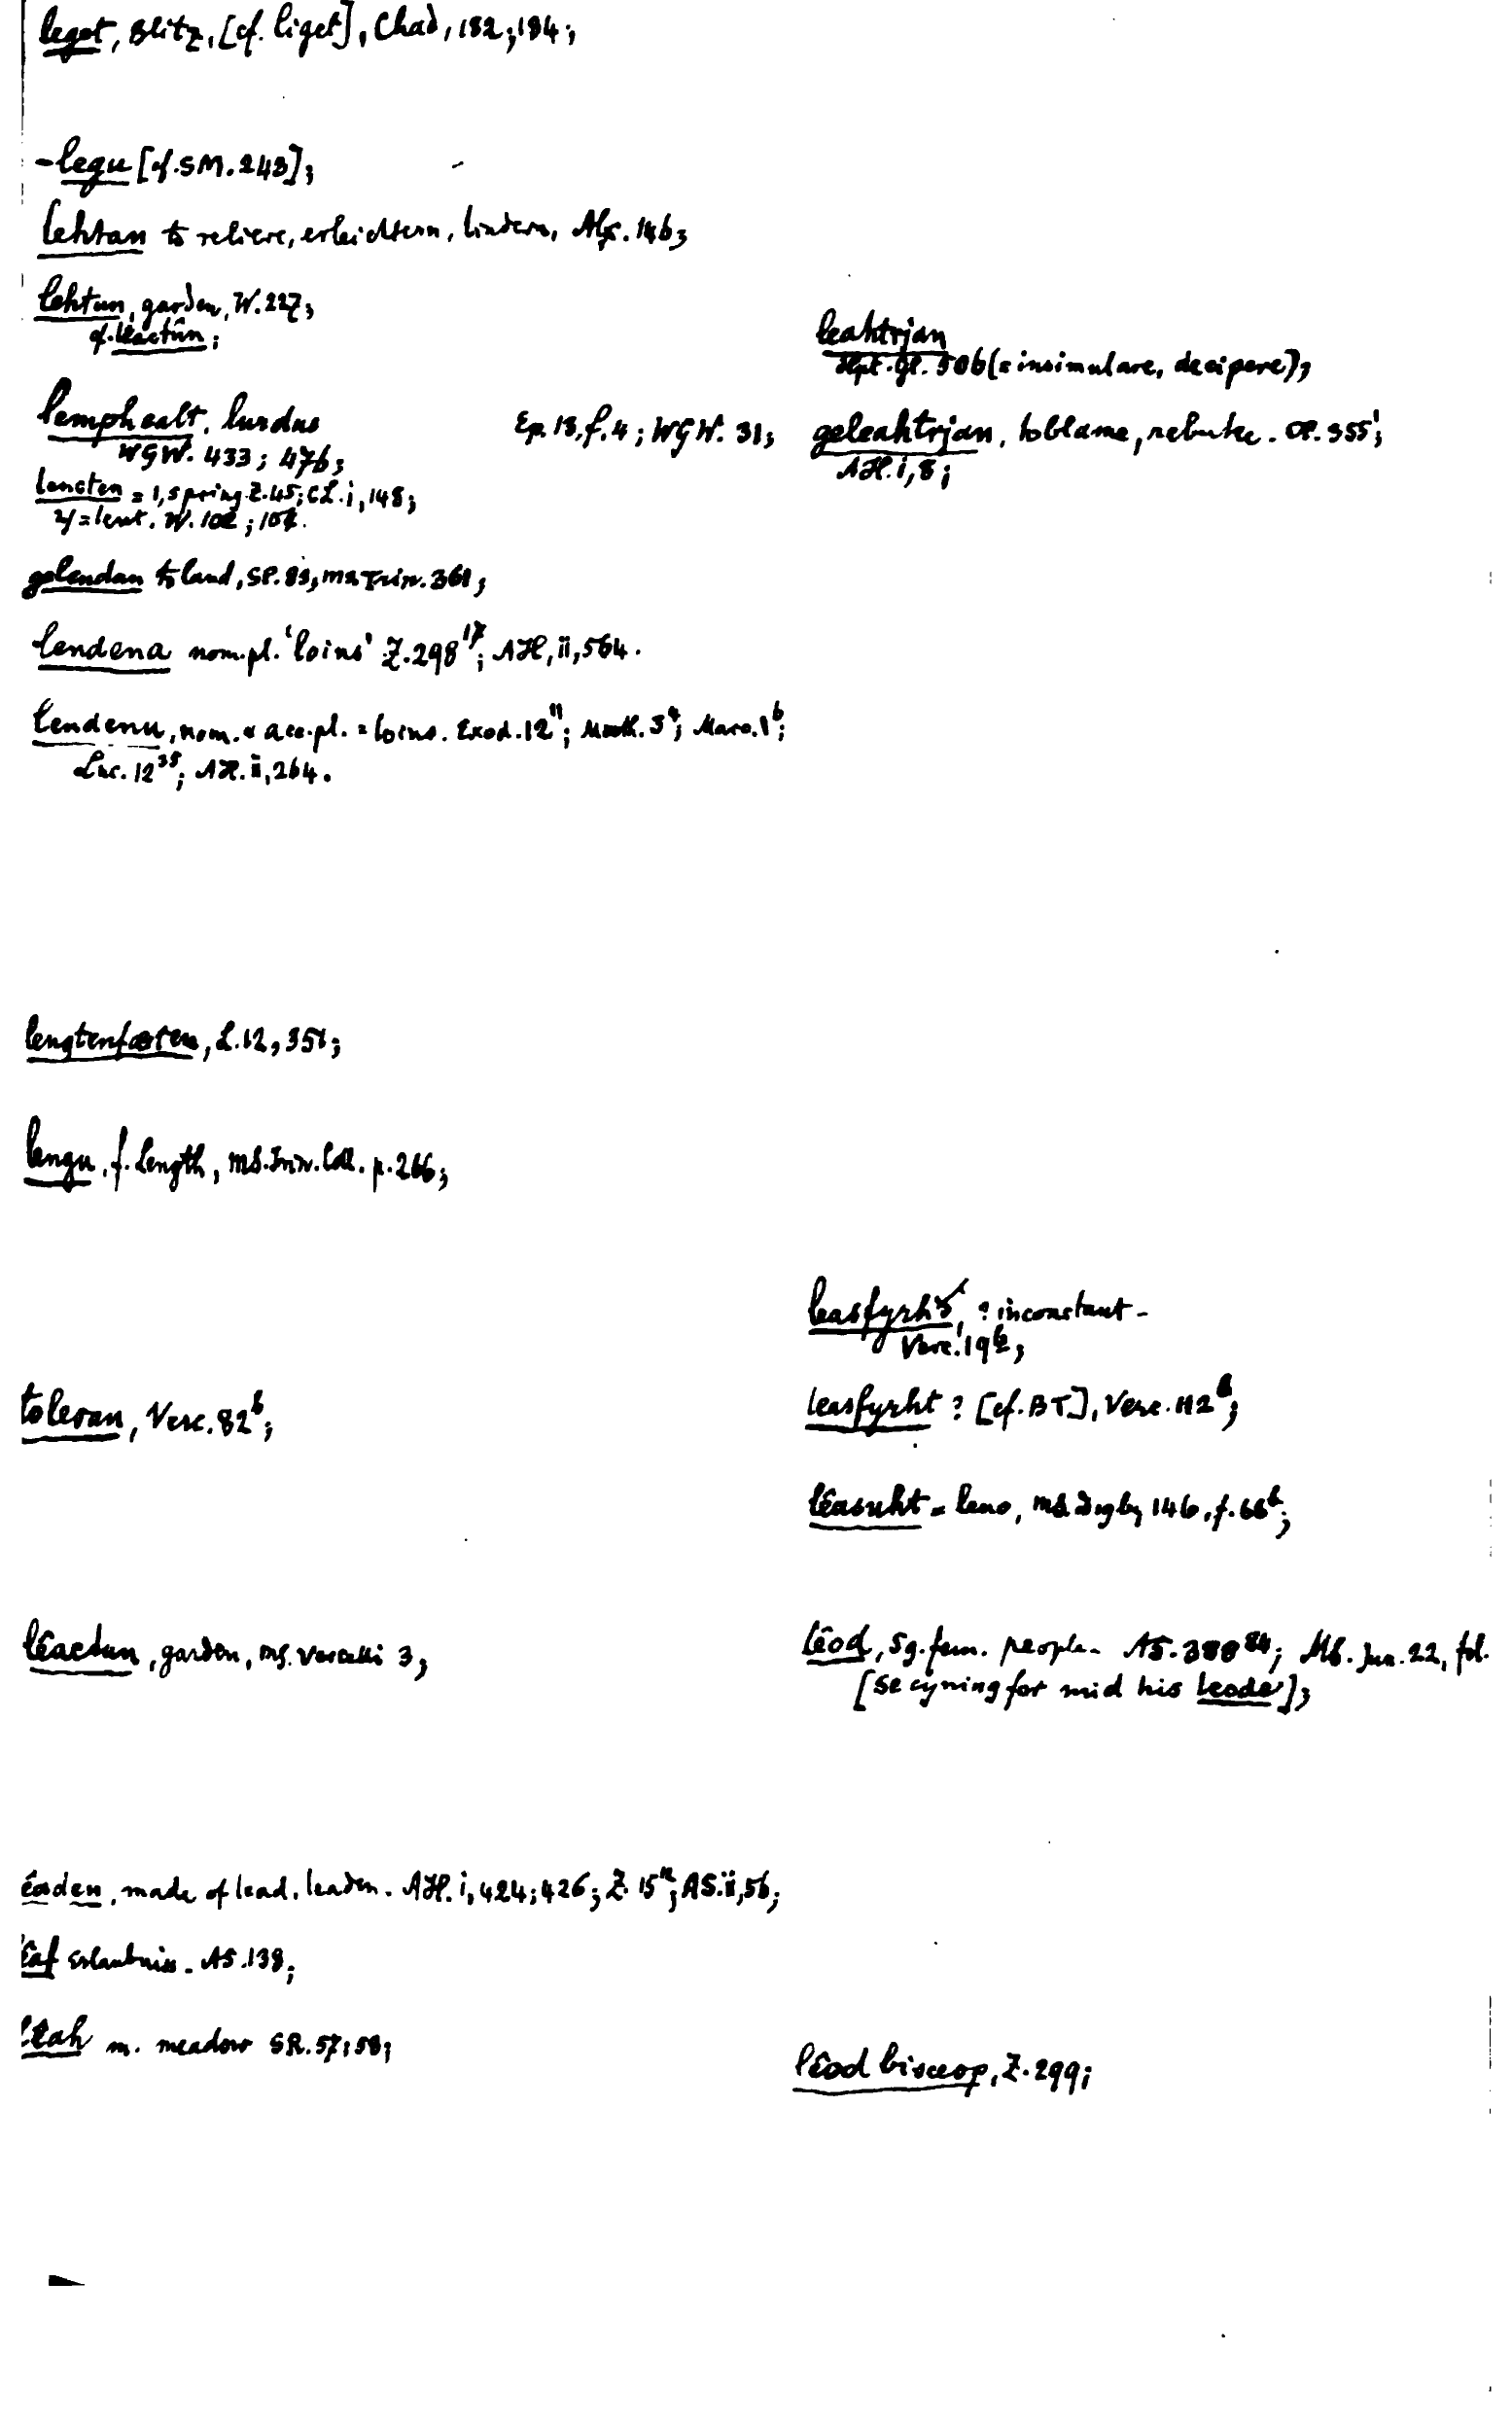 leget, Blitz, [cf. liget], Chad, 182; 184;
-legu [cf. SM. 243];
lehtan to relieve, erleichtern, lindern, Alf. 146;
lehtun, garden, W. 227;
cf. léactûn;
lemphealt, lurdus
WGW. 433; 476;
Ep. 13, f. 4; WGW. 31;
lencten = 1, spring Z. 45; CL. i, 148;
2/ = lent. W. 102;
gelendan to land, SP. 89, MS Trin. 361;
lendena nom. pl. 'loins' Z. 298¹⁷; AH, ii, 564.
lendenu, nom. & acc. pl. = loins. Exod. 12¹¹; Matth. 3⁴; Marc. 1⁶;
Luc. 12³⁵; AH. ii, 264.
lengtenfæsten, L. 12, 351;
lengu, f. length, MS. Trin. Coll. p. 266;
toleran, Verc. 82ᵇ;
léactun, garden, MS. Vercelli 3;
éaden, made of lead, leaden. AH. i, 424; 426; Z. 15; AS. ii, 56;
éaf Erlaubnis. AS. 138;
léah m. meadow SR. 57; 58;
leahtrjan
Hpt. Gl. 506 (= insimulare, decipere);
geleahtrjan, to blame, rebuke. CP. 355¹;
AH. i, 8;
leasfyrhð, ? inconstant -
Verc. 19ᵇ;
leasfyrht ? [cf. BT], Verc. 112ᵇ;
léasuht = leno, MS Digby 146, f. 66ᵇ;
léod, sg. fem. people. AS. 388⁸⁴; MS. Jun. 22, fol.
[se cyning for mid his leode];
léod bisceop, Z. 299;